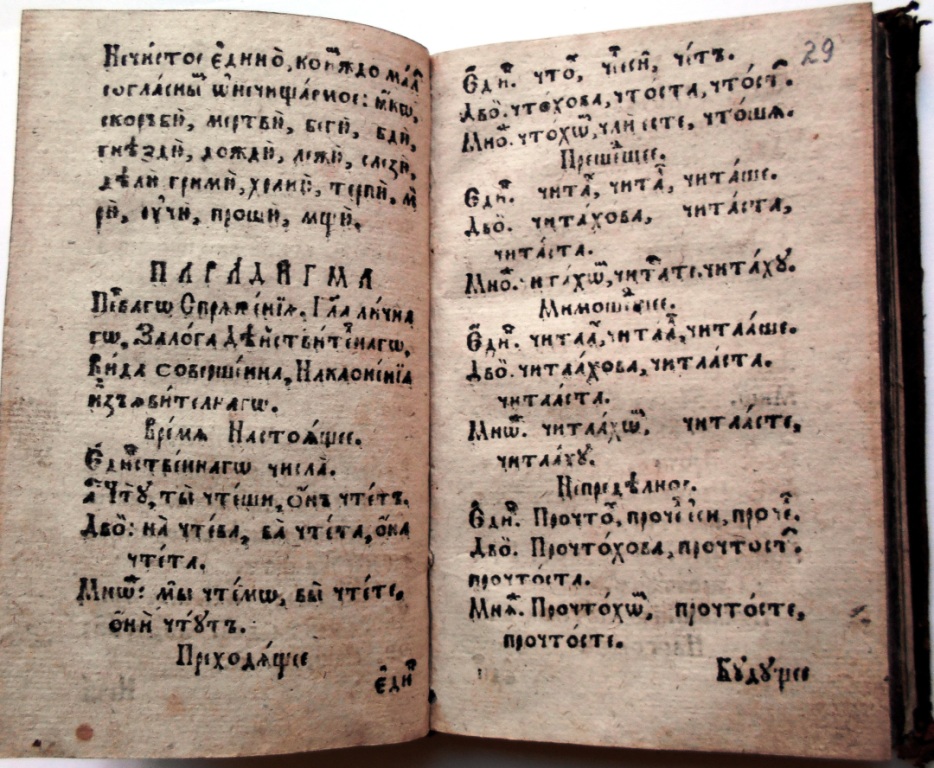 Нечи́стое є҆ди́но,
согла́сны ѡ҆нечища́емое:
ско́рьби, ме́ртви, бѣги́, бди́,
гнѣзди́, дожди́, лежи́, слези́,
дѣли́ грими́, храни́, терпи́,
ри́, ᲂу҆чи́, проси́, мщи́.
ПАРАДИГМА
Пе́рваго Спряже́нїѧ. Гла ли́чна
гѡ, Зало́га Дѣйстви́те́нагѡ,
Ви́да соверше́нна, Наклоне́нїѧ
и҆зъѧви́телнагѡ.
Вре́мѧ Настоѧ́щее.
Є҆ди́нстве́ннагѡ числа̀.
а҆́ Чтꙋ̀, ты̀ чте́ши, ѻ҆́нъ чте́тъ.
Дво̑: на̀ чте́ва, ва̀ чте́та, ѻ҆́на
чте́та.
Мнѡ: мы̀ чте́мѡ, вы̀ чте́те,
ѻ҆ни̑ чтꙋ́тъ.
Преходѧ́щее
є҆ди́н
29
Є҆ди́н. что́, че́сѝ, че́тъ.
Дво̑. что́хова, что́ста, что́ст.
Мно̑. что́хѡ, что́шѧ.
Преше́щее.
Є҆ди́н. чита́, чита́, чита́ше.
Дво̑. чита́хова, чита́ста,
чита́ста.
Мно̑. чита́хѡ, чита́те, чита́хꙋ.
Мимоше́щее.
Є҆ди́н. читаа́, читаа́, читаа́ше.
Дво̑. читаа́хова, читаа́ста.
читаа́ста.
Мнѡ. читаа́хѡ, читаа́сте,
читаа́хꙋ.
Непредѣ́лное.
Є҆ди́н. Прочто́, проче́.
Дво̑. Прочто́хова, прочто́ст.
прочто́ста.
Мнѡ. Прочто́хѡ, прочто́сте,
прочто́сте.
Бꙋ́дꙋщее